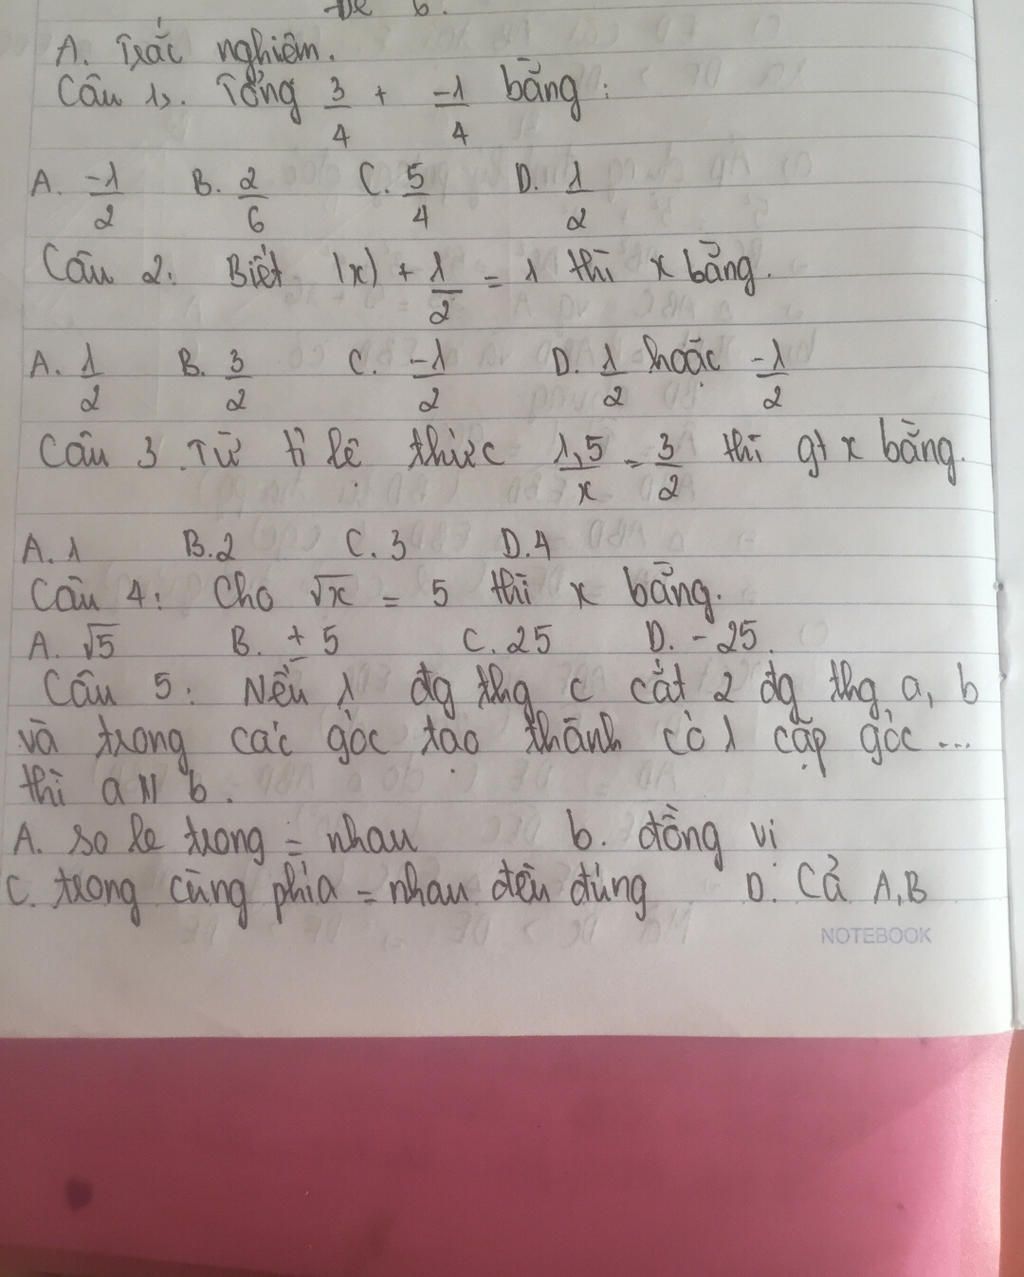 Đề 6.
A. Trắc nghiệm.
Câu 1,. Tổng 3/4 + -1/4 bằng:
A. -1/2 B. 2/6 C. 5/4 D. 1/2
Câu 2: Biết |x| + 1/2 = 1 thì x bằng.
A. 1/2 B. 3/2 C. -1/2 D. 1/2 hoặc -1/2
Câu 3. Từ tỉ lệ thức 1,5/x = 3/2 thì gt x bằng.
A. 1 B. 2 C. 3 D. 4
Câu 4: Cho √x = 5 thì x bằng.
A. √5 B. ± 5 C. 25 D. - 25.
Câu 5: Nếu 1 đg thg c cắt 2 đg thg a, b
và trong các góc tạo thành có 1 cặp góc ...
thì a // b.
A. so le trong = nhau b. đồng vị
C. trong cùng phía = nhau đều đúng D. Cả A,B
NOTEBOOK